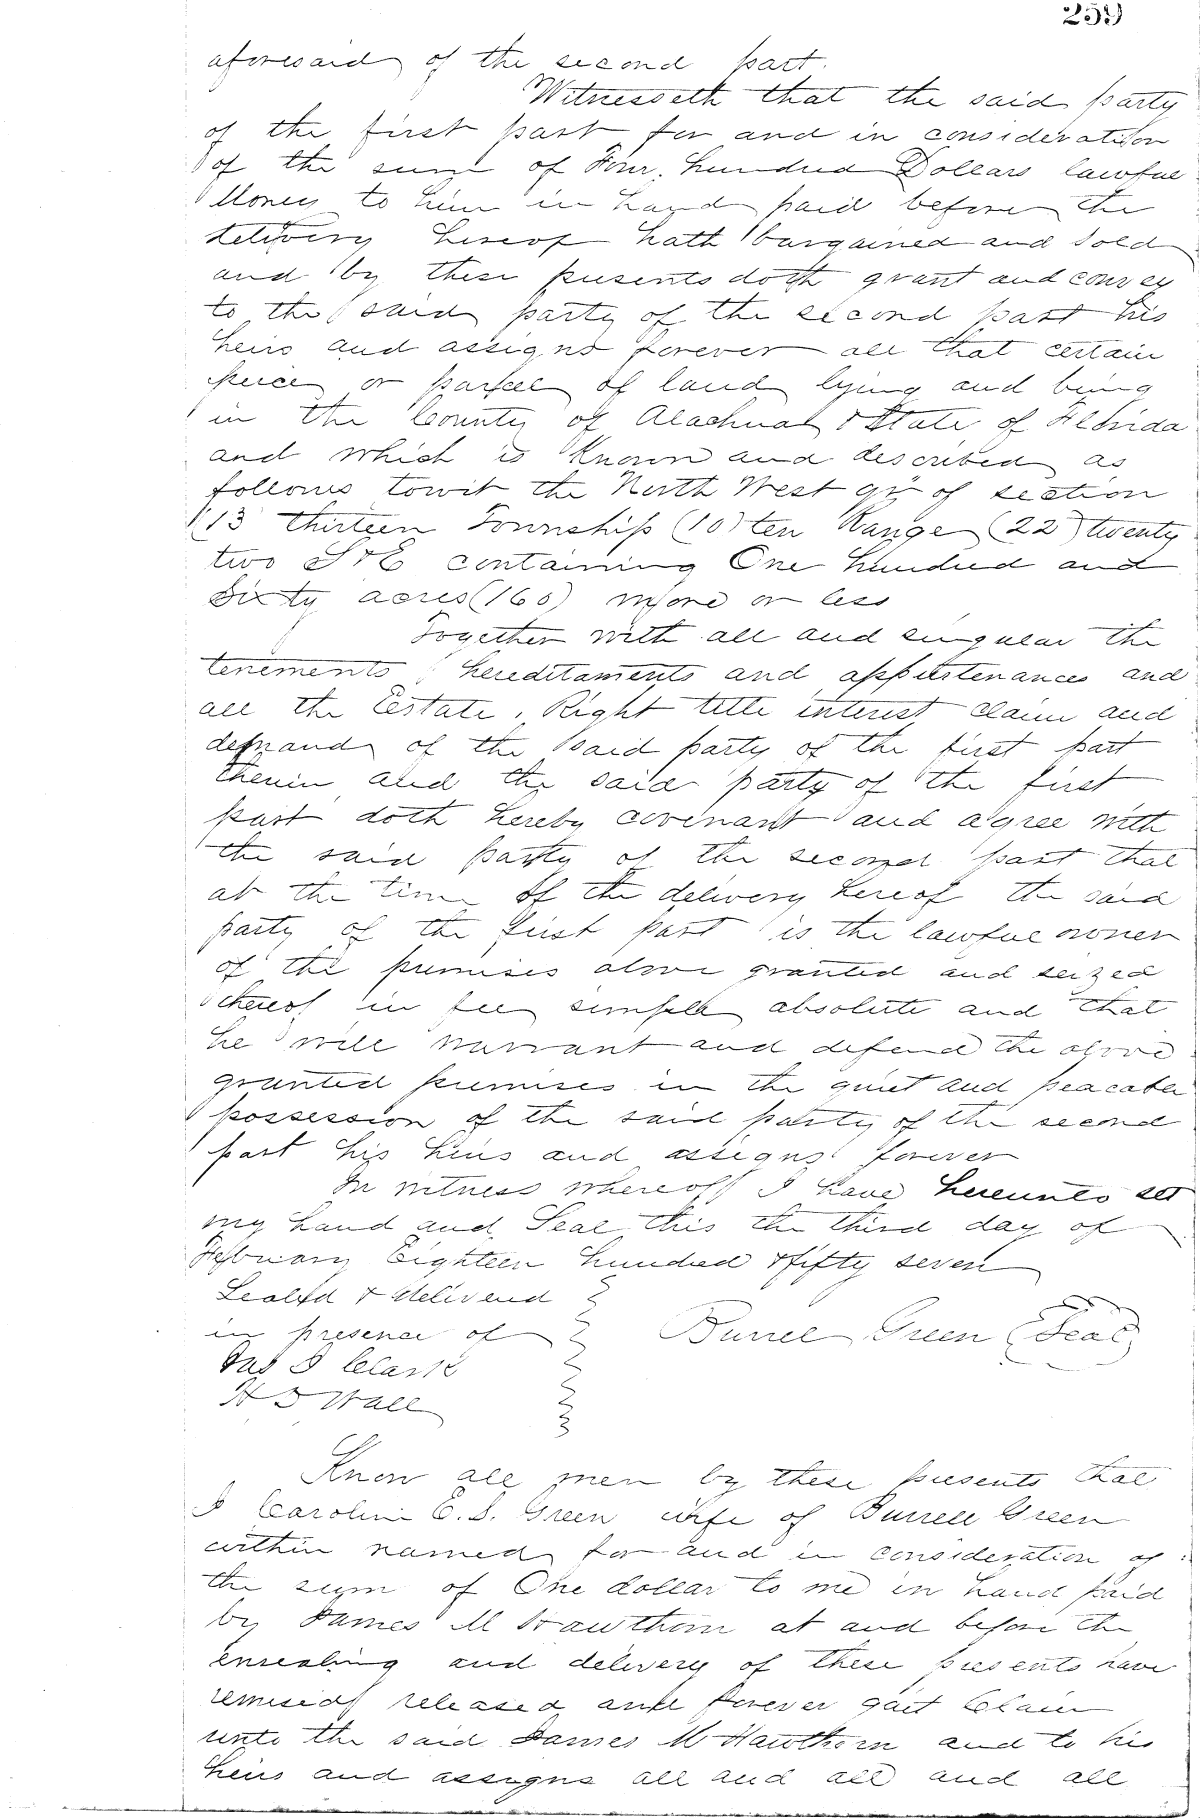 259
aforesaid of the second part.
Witnesseth that the said party
of the first part for and in consideration
of the sum of Four hundred Dollars lawful
Money to him in hand paid before the
delivery hereof hath bargained and sold
and by these presents doth grant and convey
to the said party of the second part his
heirs and assigns forever all that certain
peice or parcel of land lying and being
in the County of Alachua & State of Florida
and which is Known and described as
follows towit the North West qr of section
13 thirteen Township (10) ten Range (22) twenty
two S & E containing One hundred and
Sixty acres (160) more or less
Together with all and singular the
tenements, hereditaments and appurtenances and
all the Estate, Right title interest claim and
demand of the said party of the first part
therein and the said party of the first
part doth hereby covenant and agree with
the said party of the second part that
at the time of the delivery hereof the said
party of the first part is the lawful owner
of the premises above granted and seized
thereof in fee simple absolute and that
he will warrant and defend the above
granted premises in the quiet and peacable
possession of the said party of the second
part his heirs and assigns forever
In witness whereof I have hereunto set
my hand and Seal this the third day of
February Eighteen hundred & fifty seven
Sealed & delivered
in presence of Burrel Green (Seal)
Clark
H S Wall
Know all men by these presents that
I Caroline E. S. Green wife of Burrell Green
within named for and in consideration of
the sum of One dollar to me in hand paid
by James M Hawthorn at and before the
ensealing and delivery of these presents have
remised released and forever quit Claim
unto the said James M Hawthorn and to his
heirs and assigns all and all and all